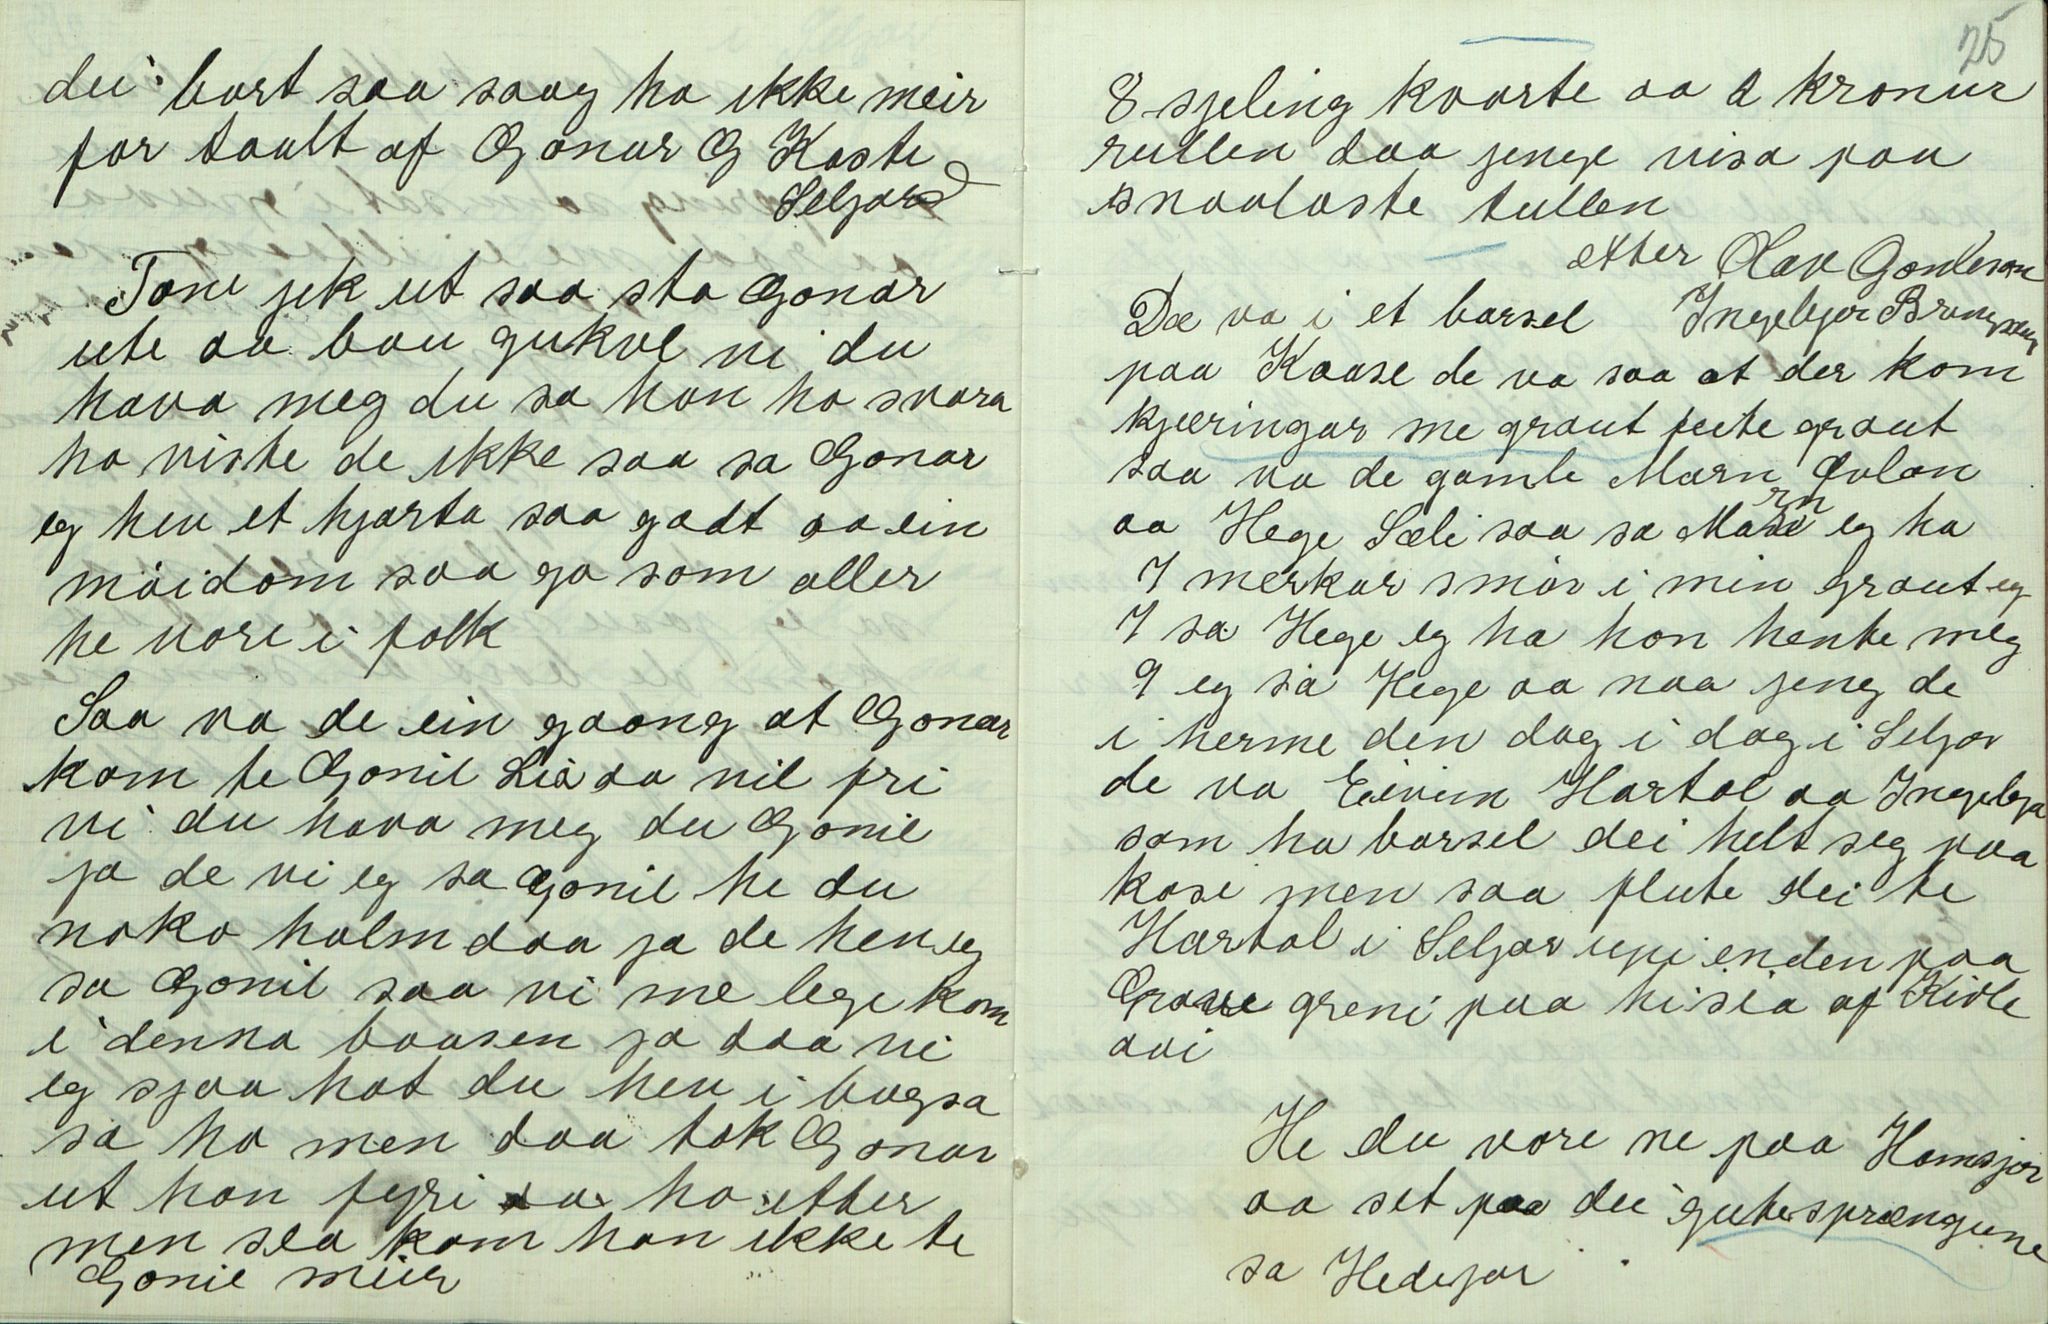 dei bort saa saag ho ikke meir
for taalt af Gonar G Kaste
Seljord
Tone jek ut saa sto Gonar
ute aa bau gukvel vi du
hava meg du sa han ho svara
ho viste de ikke saa sa Gonar
eg heu et hjarta saa godt aa ein
möidom saa go som aller
he vore i folk
Saa va de ein gaang at Gonar
kom te Gonil Lia aa vil fri
vi du hava meg du Gonil
ja de vi eg sa Gonil he du
noko halm daa ja de heu eg
sa Gonil saa vi me lege kom
i denna baasen ja daa vi
eg sjaa hot du heu i bogsa
sa ho men daa tok Gonar
ut han fyri aa ho etter
men sea kom han ikke te
Gonil meir
25
8 sjeling kvarte aa 2 kronur
rullen daa jenge visa paa
snaalaste tullen
etter Olav Gonleson
Ingebjor
Dæ va i et barsel
paa Kaase de va saa at der kom
kjæringar me graut feite graut
saa va de gamle Marn Ovlan
aa Hege Sæli saa sa Marn eg ha
7 merkar smör i min graut eg
7 sa Hege eg ha han hente meg
9 eg sa Hege aa naa jeng de
i herme den dag i dag i Seljor
de va Eivin Hartol aa Ingebjor
som ha barsel dei helt seg paa
kase men saa flute dei te
Hartol i Seljor upi enden paa
Grave greni paa hi sia af Kivle
aai
He du vore ne paa Homsjor
aa set paa dei gutesprængune
sa Hedejor